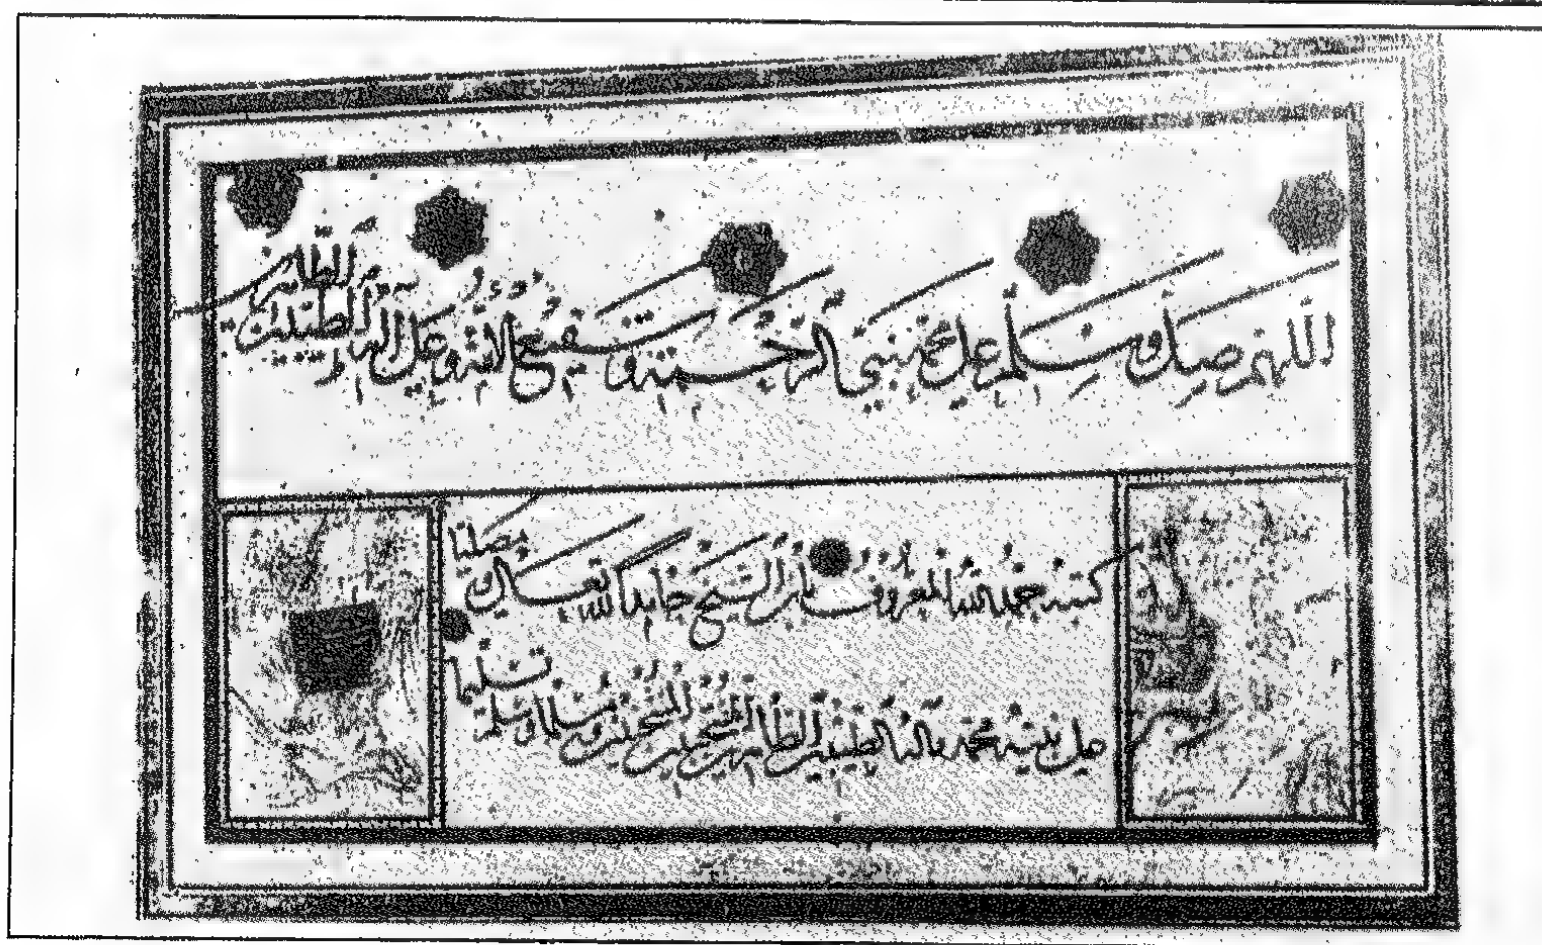 اللهم صل وسلم على محمد نبي الرحمة وشفيع الامة وعلى اله الطيبين الطاهرين
كتبه حمد الله المعروف بابن الشيخ حامدا لله تعالى و مصليا
على نبيه محمد واله الطيبين الطاهرين وسلم تسليما